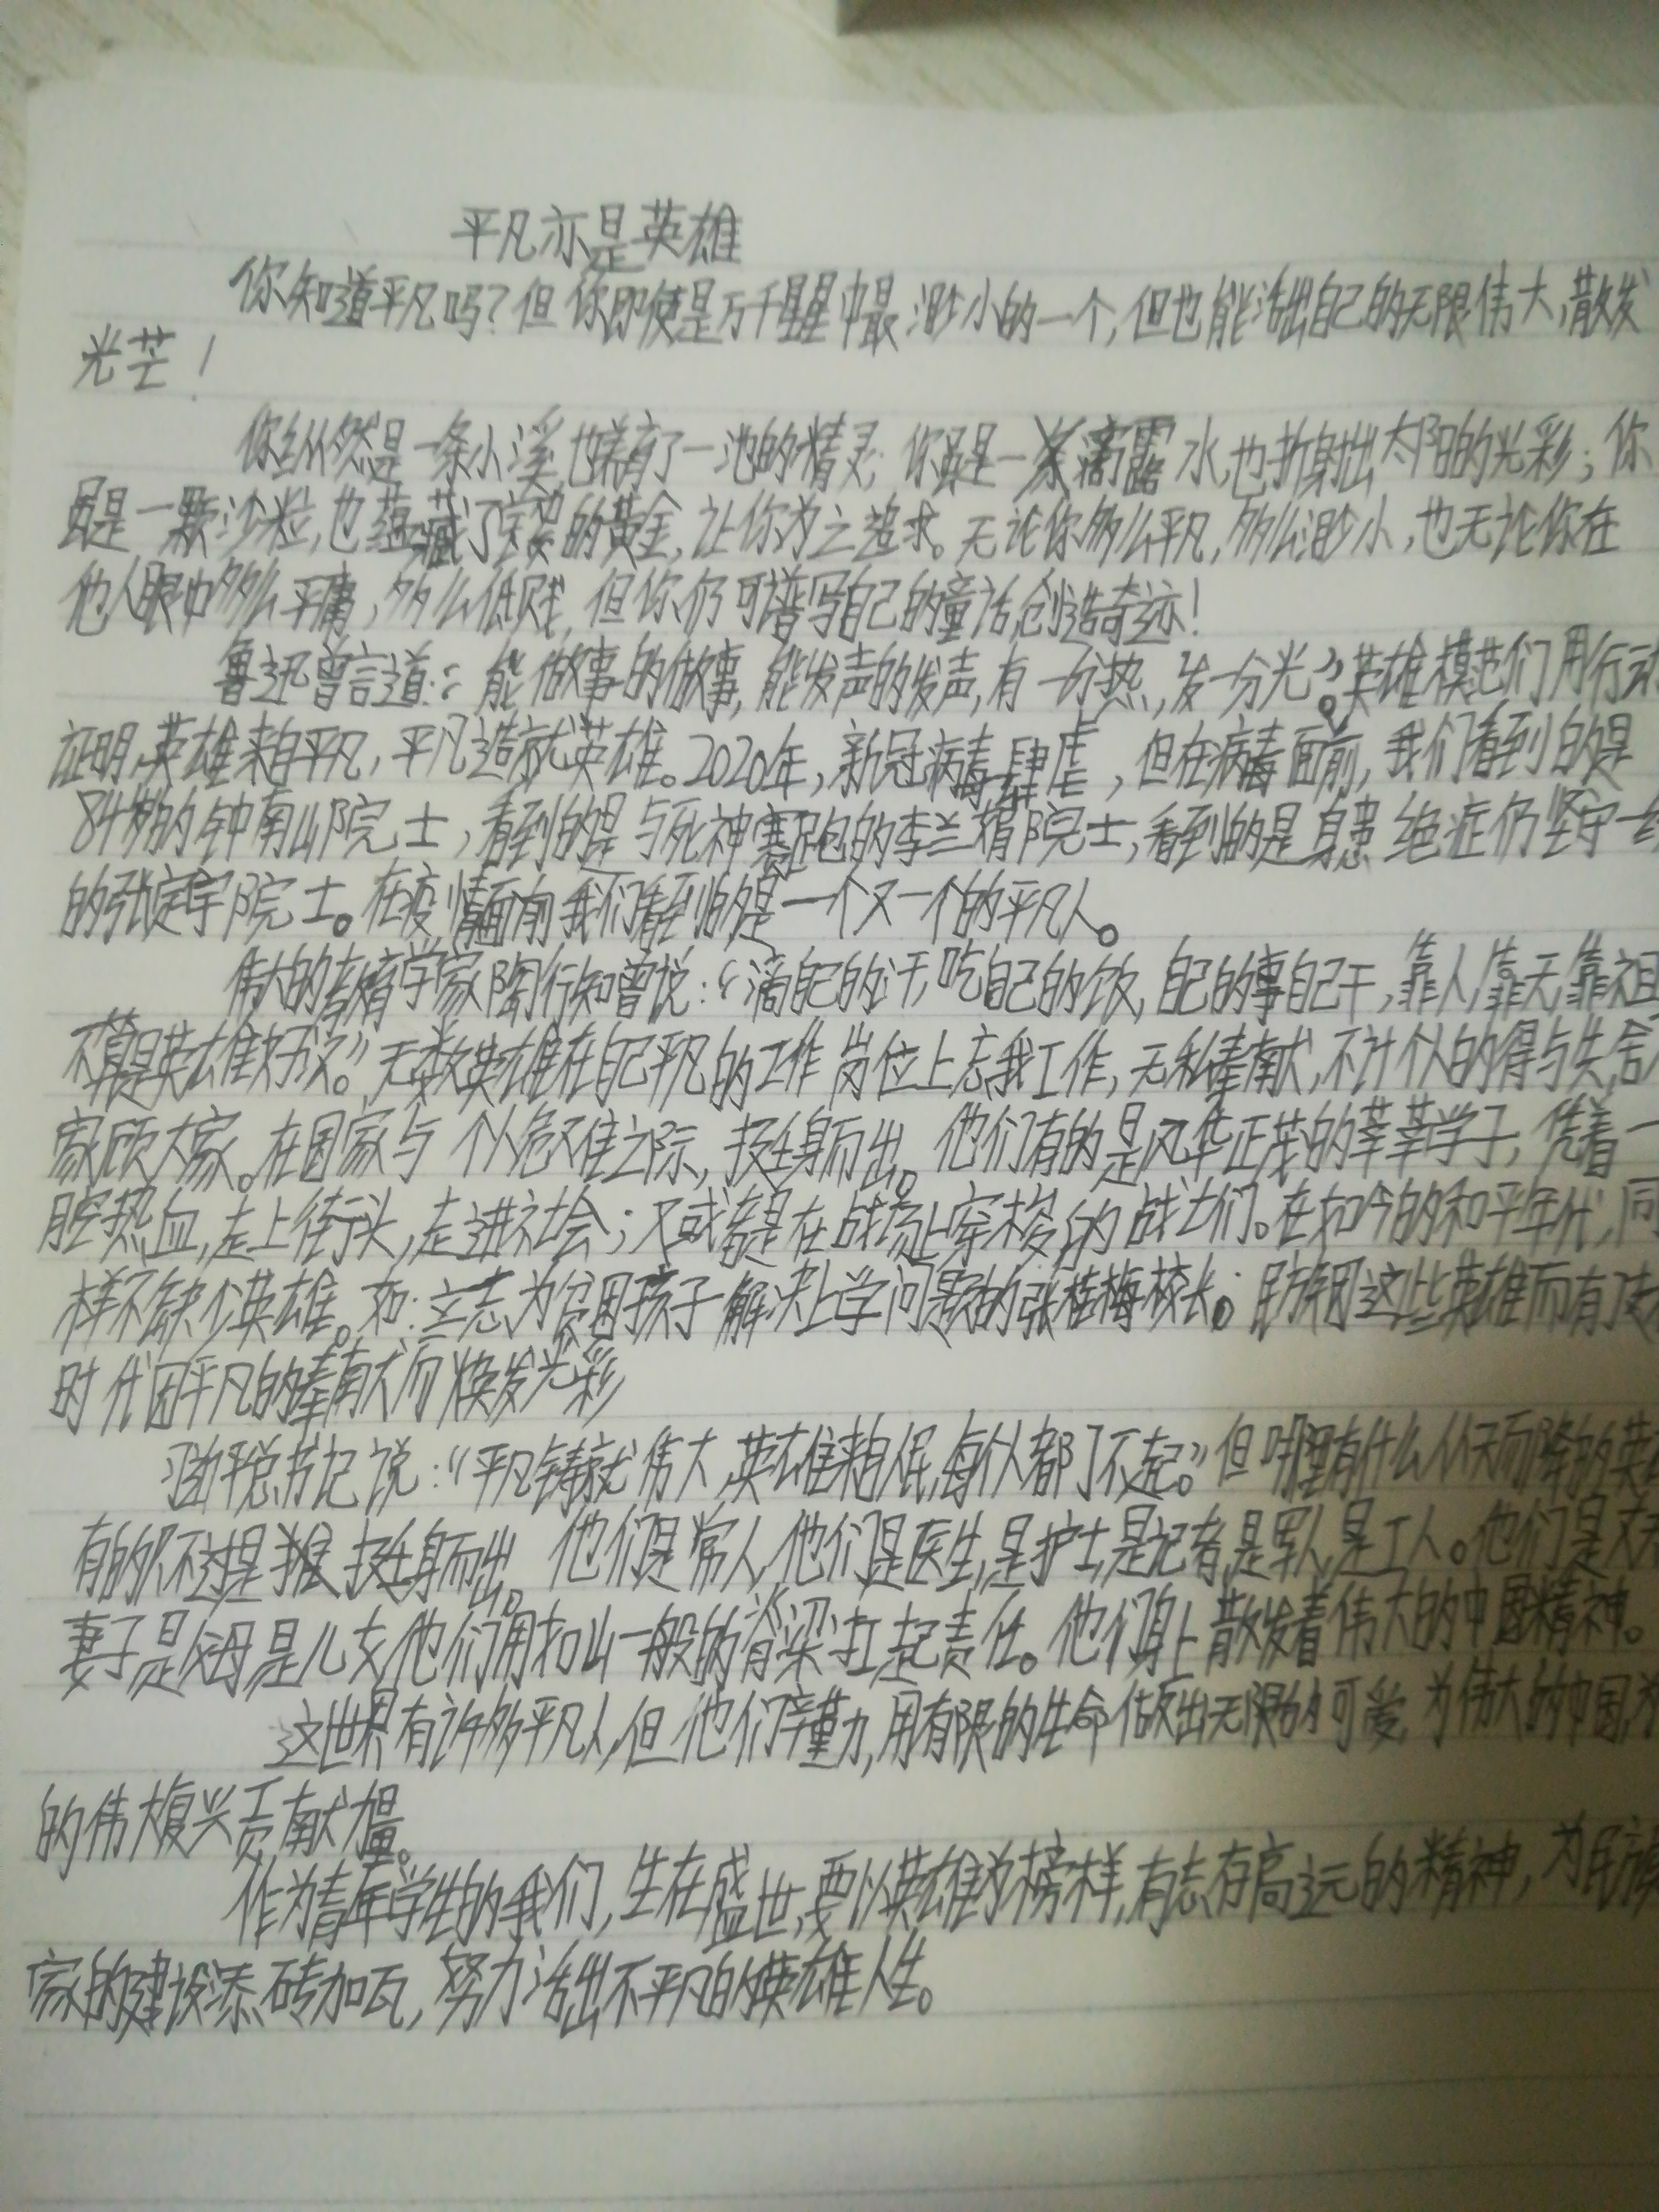 平凡亦是英雄
你知道平凡吗?但你即使是万千星中最渺小的一个,但也能活出自己的无限伟大,散发
光芒!
你纵然是一条小溪,也养育了一池的精灵;你虽是一滴露水,也折射出太阳的光彩;你
虽是一颗沙粒,也蕴藏了的黄金,让你为之追求。无论你多么平凡,多么渺小,也无论你在
他人眼中多么平庸,多么低贱,但你仍可谱写自己的童话,创造奇迹!
鲁迅曾言道:“能做事的做事,能发声的发声,有一分热,发一分光”。英雄模范们用行动
证明,英雄来自平凡,平凡造就英雄。2020年,新冠病毒肆虐,但在病毒面前,我们看到的是
84岁的钟南山院士,看到的是与死神赛跑的李兰娟院士,看到的是身患绝症仍坚守一
的张定宇院士。在疫情面前我们看到的是一个又一个的平凡人。
伟大的教育学家陶行知曾说:“滴自己的汗,吃自己的饭,自己的事自己干,靠人,靠天,靠祖
不算是英雄好汉。”无数英雄在自己平凡的工作岗位上忘我工作,无私奉献,不计个人的得与失,舍
家顾大家。在国家与个人危难之际,挺身而出。他们有的是风华正茂的莘莘学子,凭着一
腔热血,走上街头,走进社会;又或者是在战场上穿梭的战士们。在如今的和平年代,同
样不缺少英雄。如:立志为贫困孩子解决上学问题的张桂梅校长。因这些英雄而有了
时代因平凡的奉献而焕发光彩
习近平总书记说:“平凡铸就伟大,英雄来自人民,每个人都了不起。”但哪里有什么从天而降的英
有的不过是挺身而出。他们是常人,他们是医生,是护士,是记者,是军人,是工人。他们是丈夫
妻子是父母是儿女,他们用如山一般的脊梁扛起责任。他们身上散发着伟大的中国精神。
这世界有许多平凡人,但他们辛勤,用有限的生命做出无限的可爱,为伟大的中国,为
的伟大复兴贡献力量。
作为青年学生的我们,生在盛世,要以英雄为榜样,有志存高远的精神,为民族
家的建设添砖加瓦,努力活出不平凡的英雄人生。